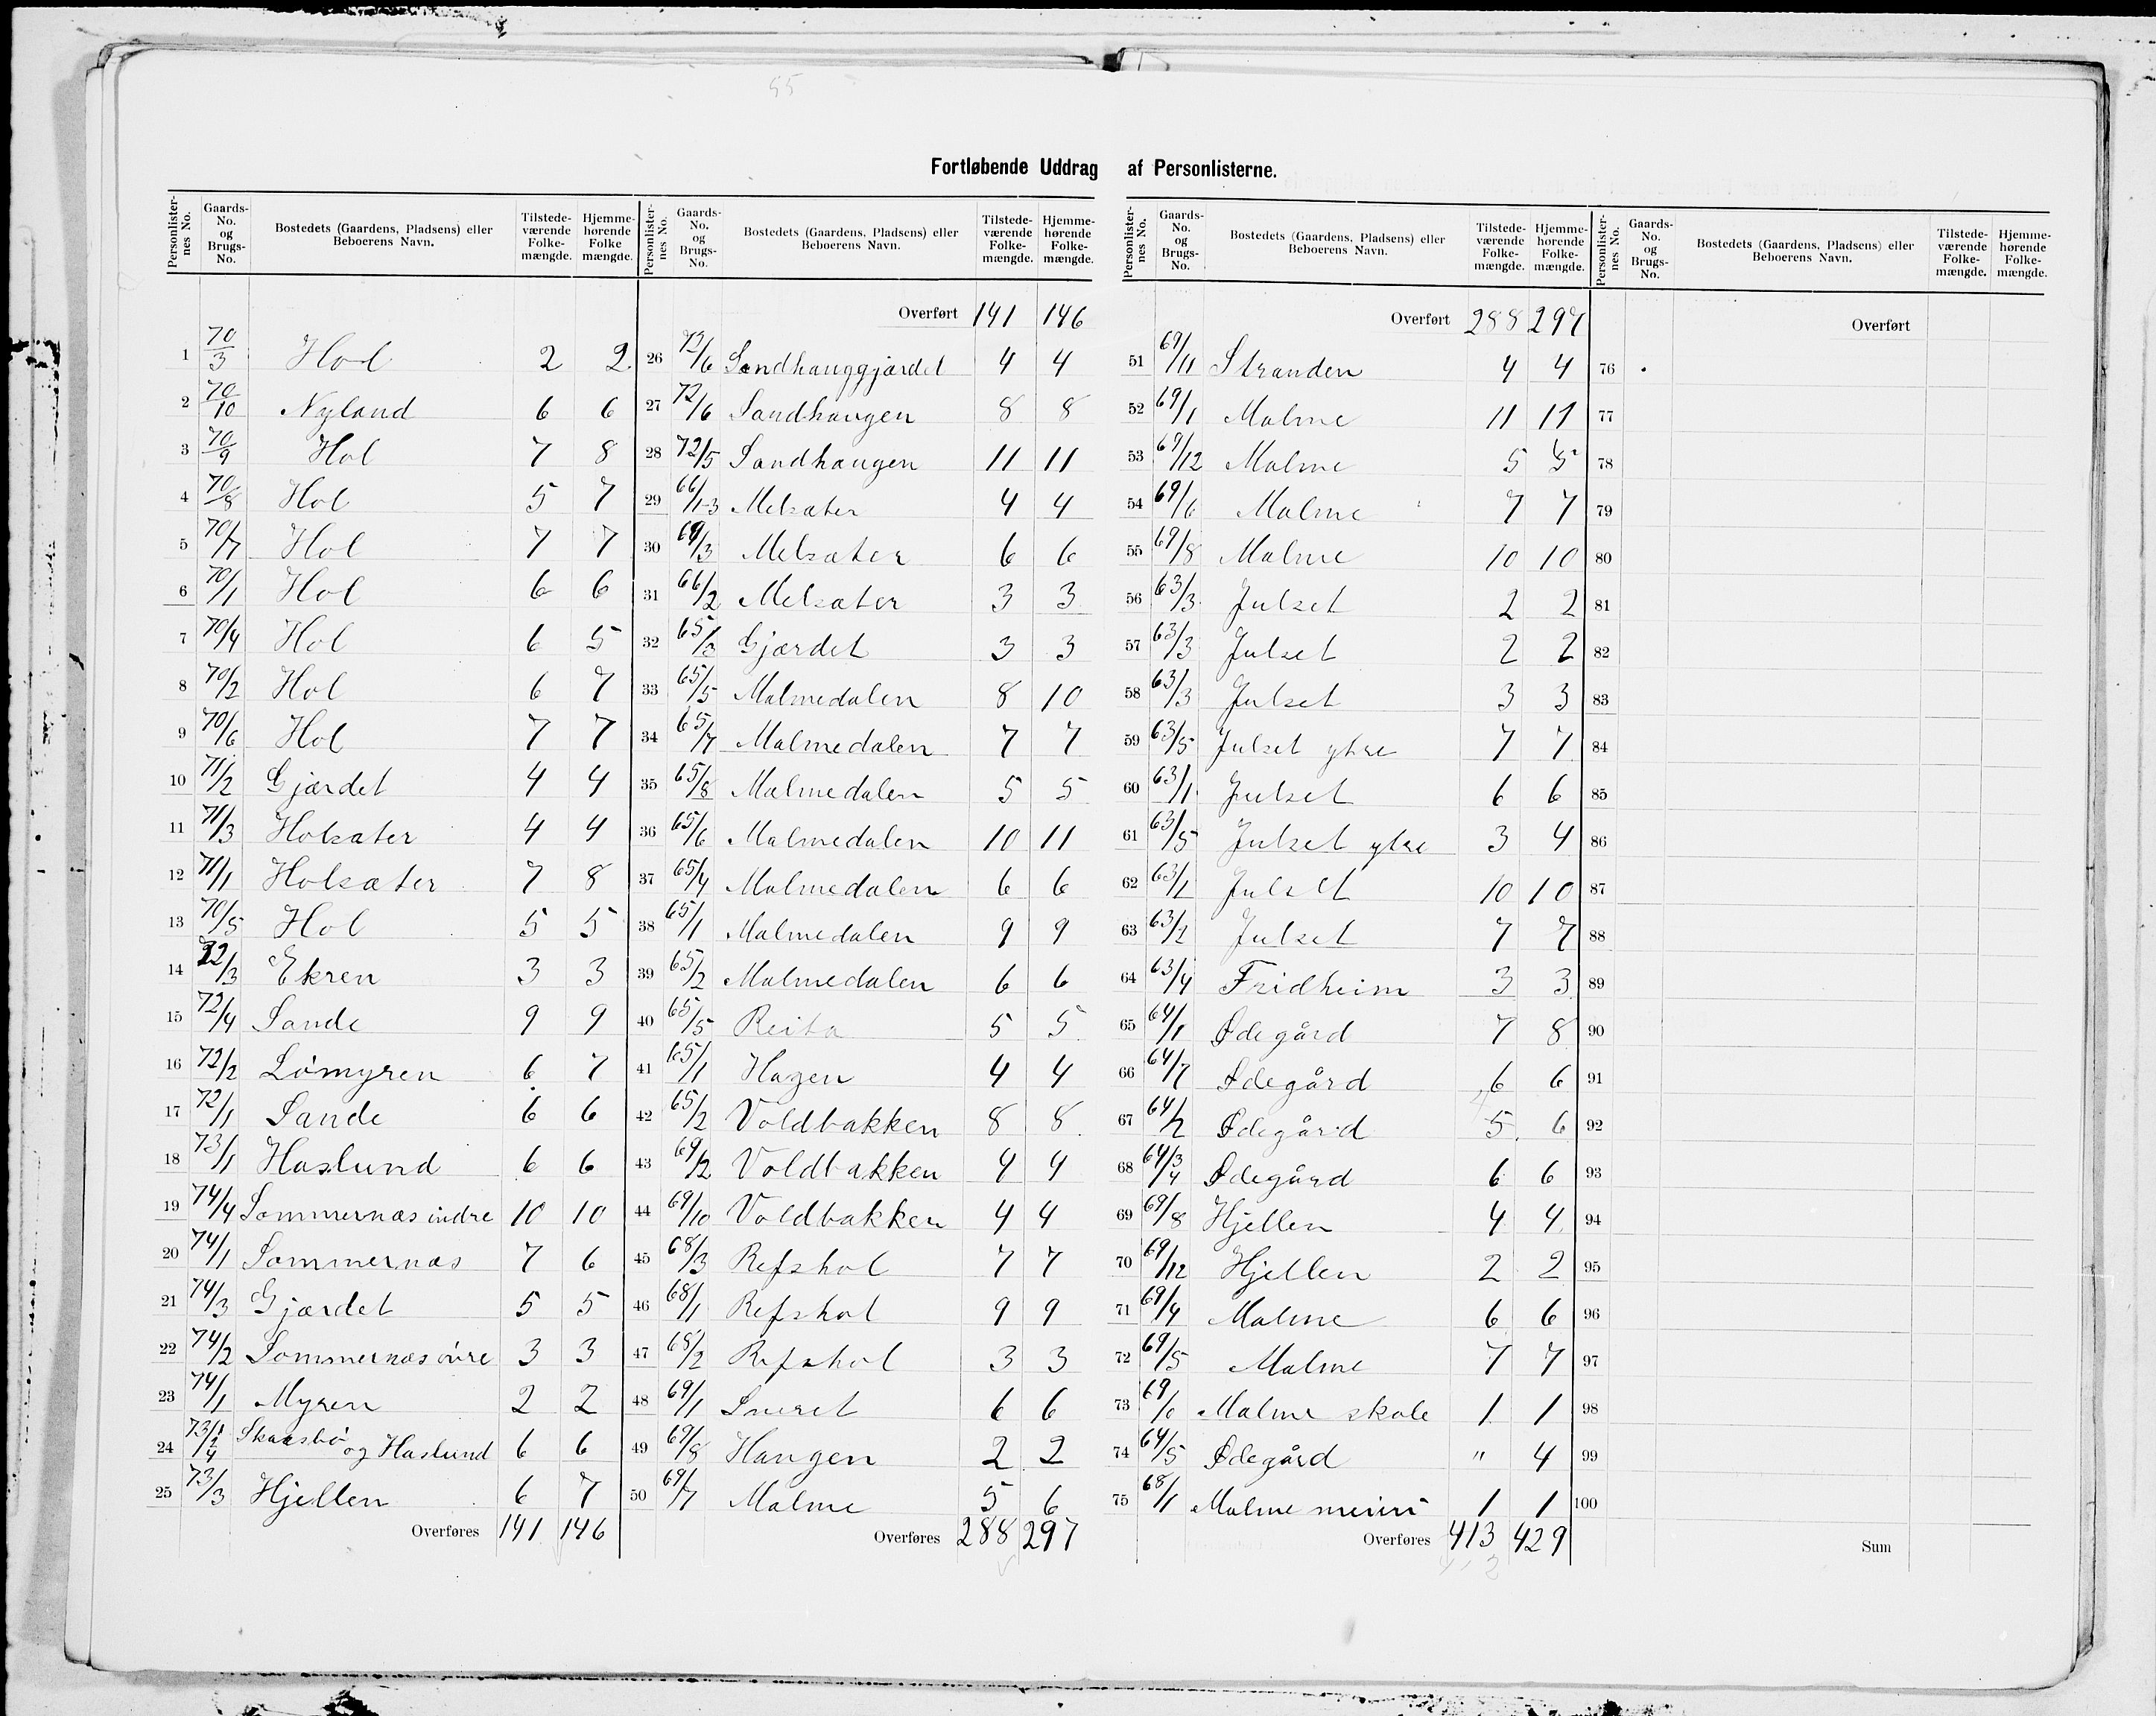 55
Fortløbende Uddrag af Personlisterne.
Personlister-nes No. | Gaards-No. og Brugs-No. | Bostedets (Gaardens, Pladsens) eller Beboerens Navn. | Tilstede-værende Folke-mængde. | Hjemme-hørende Folke mængde.
1 70/3 Hol 2 2
2 70/10 Nyland 6 6
3 70/9 Hol 7 8
4 70/8 Hol 5 7
5 70/7 Hol 7 7
6 70/1 Hol 6 6
7 70/4 Hol 6 5
8 70/2 Hol 6 7
9 70/6 Hol 7 7
10 71/2 Gjærdet 4 4
11 71/3 Holsæter 4 4
12 71/1 Holsæter 7 8
13 70/5 Hol 5 5
14 72/3 Ekren 3 3
15 72/4 Sande 9 9
16 72/2 Lömyren 6 7
17 72/1 Sande 6 6
18 73/1 Haslund 6 6
19 74/4 Sommernæs indre 10 10
20 74/1 Sommernæs 7 6
21 74/3 Gjærdet 5 5
22 74/2 Sommernæs övre 3 3
23 74/1 Myren 2 2
24 73/1 2 4 Skaasbö og Haslund 6 6
25 73/3 Hjellen 6 7
Overføres 141 146
Personlister-nes No. | Gaards-No. og Brugs-No. | Bostedets (Gaardens, Pladsens) eller Beboerens Navn. | Tilstede-værende Folke-mængde. | Hjemme-hørende Folke-mængde.
Overført 141 146
26 72/6 Sandhauggjærdet 4 4
27 72/6 Sandhaugen 8 8
28 72/5 Sandhaugen 11 11
29 66/1-3 Melsæter 4 4
30 /3 Melsæter 6 6
31 66/2 Melsæter 3 3
32 65/3 Gjærdet 3 3
33 65/5 Malmedalen 8 10
34 65/7 Malmedalen 7 7
35 65/8 Malmedalen 5 5
36 65/6 Malmedalen 10 11
37 65/4 Malmedalen 6 6
38 65/1 Malmedalen 9 9
39 65/2 Malmedalen 6 6
40 65/5 Reita 5 5
41 65/1 Hagen 4 4
42 65/2 Voldbakken 8 8
43 69/2 Voldbakken 4 4
44 69/10 Voldbakken 4 4
45 68/3 Refshol 7 7
46 68/1 Refshol 9 9
47 68/2 Refshol 3 3
48 69/1 Sneret 6 6
49 69/8 Haugen 2 2
50 69/7 Malme 5 6
Overføres 288 297
Personlister-nes No. | Gaards-No. og Brugs-No. | Bostedets (Gaardens, Pladsens) eller Beboerens Navn. | Tilstede-værende Folke-mængde. | Hjemme-hørende Folke-mængde.
Overført 288 297
51 69/11 Stranden 4 4
52 69/1 Malme 11 11
53 69/12 Malme 5 5
54 69/6 Malme 7 7
55 69/8 Malme 10 10
56 63/3 Julset 2 2
57 63/3 Julset 2 2
58 63/3 Julset 3 3
59 63/5 Julset ytre 7 7
60 63/1 Julset 6 6
61 63/5 Julset ytre 3 4
62 63/1 Julset 10 10
63 63/2 Julset 7 7
64 63/4 Fridheim 3 3
65 64/1 Ødegård 7 8
66 64/7 Ødegård 6 6
67 64/2 Ødegård 5 6
68 64/3 4 Ødegård 6 6
69 69/8 Hjellen 4 4
70 69/12 Hjellen 2 2
71 69/4 Malme 6 6
72 69/5 Malme 7 7
73 69/0 Malme skole 1 1
74 64/5 Ødegård " 4
75 68/1 Malme meieri 1 1
Overføres 413 429
Personlister-nes No. | Gaards-No. og Brugs-No. | Bostedets (Gaardens, Pladsens) eller Beboerens Navn. | Tilstede-værende Folke-mængde. | Hjemme-hørende Folke-mængde.
Overført
76
77
78
79
80
81
82
83
84
85
86
87
88
89
90
91
92
93
94
95
96
97
98
99
100
Sum